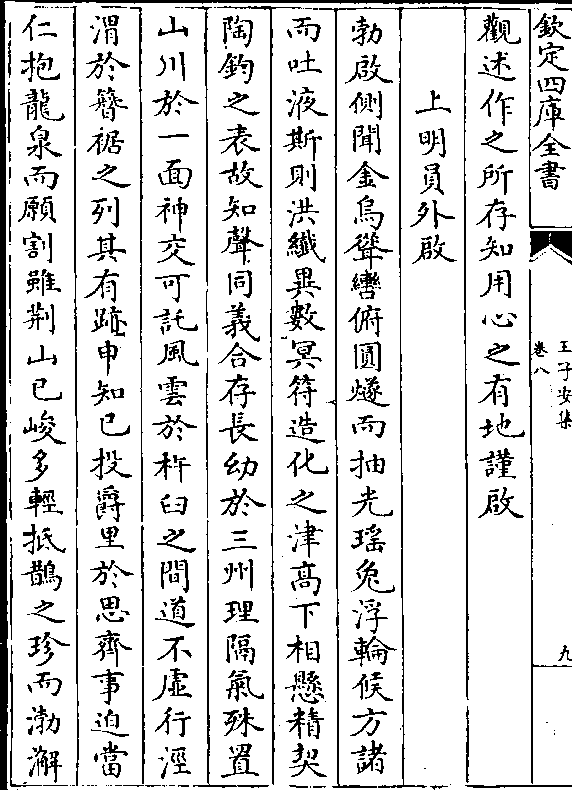 欽定四庫全書
王子安集
卷八
九
觀述作之所存知用心之有地謹啟
上明員外啟
勃啟側聞金烏聳轡俯圓燧而抽光瑤兔浮輪候方諸
而吐液斯則洪纖異數冥符造化之津高下相懸精契
陶鈞之表故知聲同義合存長幼於三州理隔氣殊置
山川於一面神交可託風雲於杵臼之間道不虛行涇
渭於簪裾之列其有跡申知已投爵里於思齊事迫當
仁抱龍泉而願割雖荆山已峻多輕抵鵲之珍而渤澥